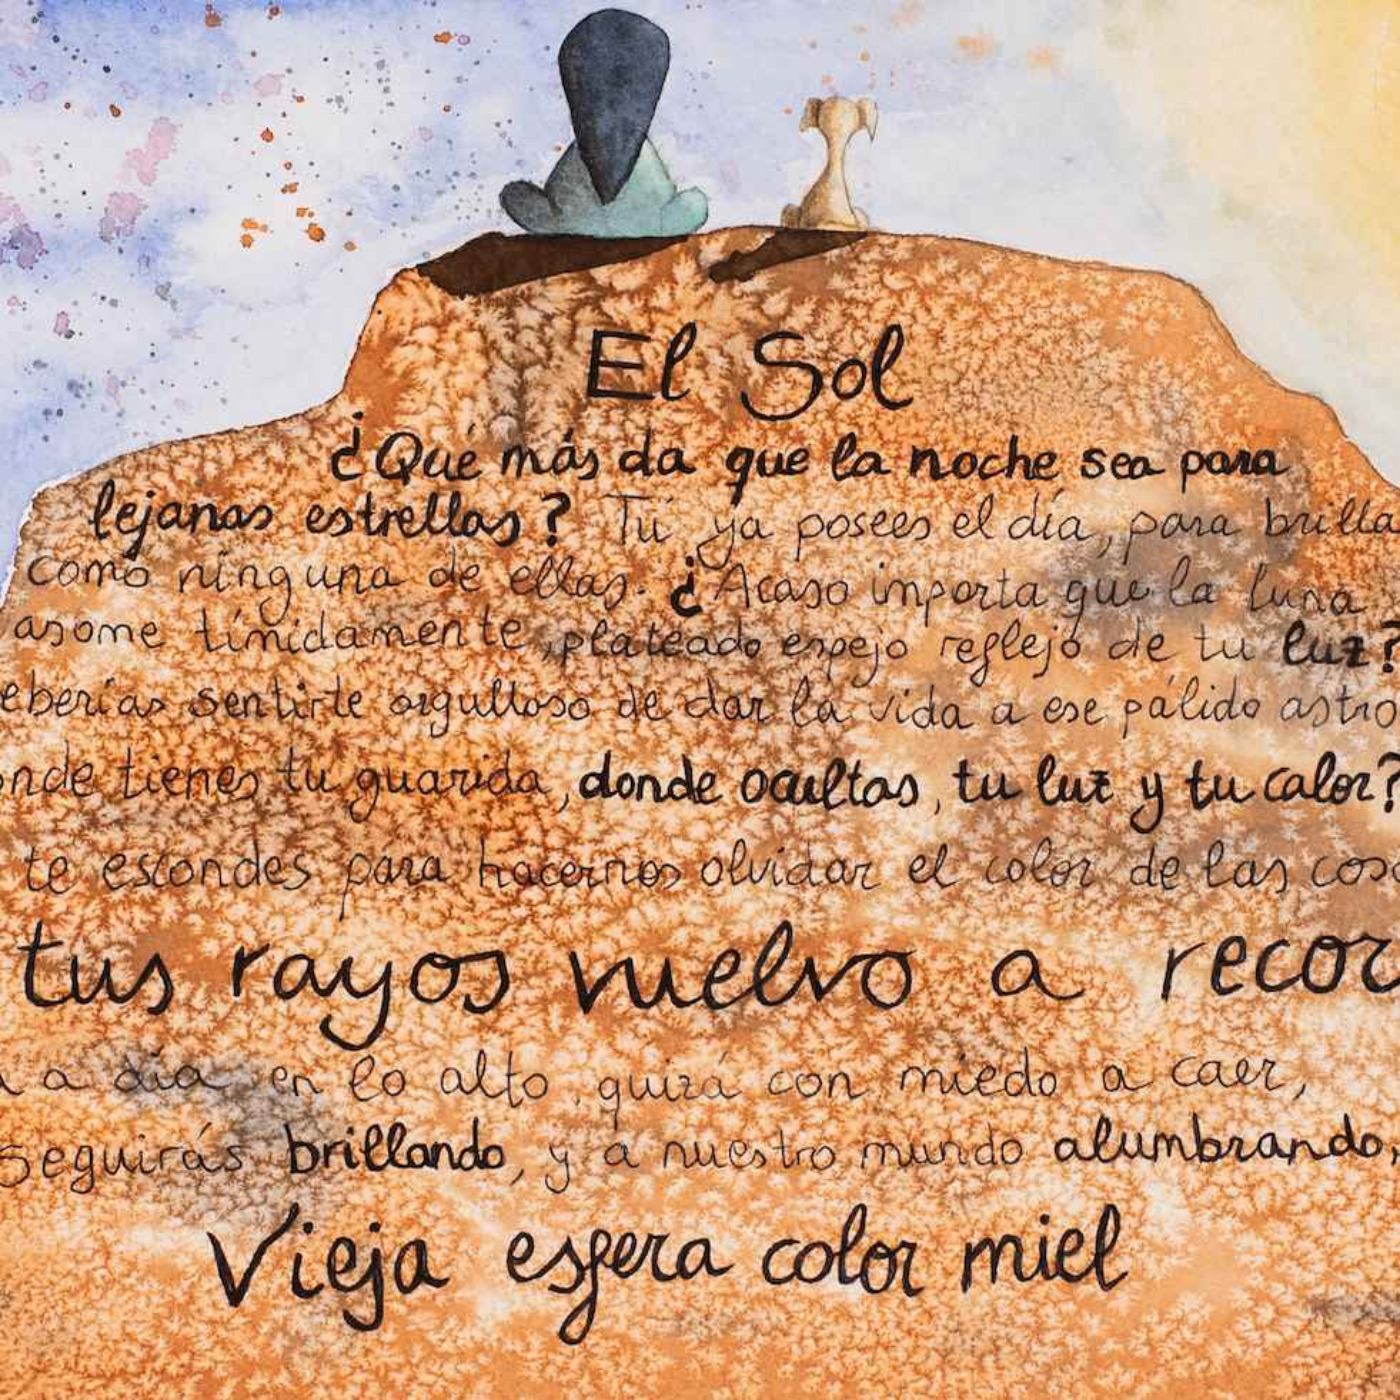 El Sol
¿Qué más da que la noche sea para
lejanas estrellas? Tú ya posees el día, para brilla
como ninguna de ellas. ¿Acaso importa que la luna
asome tímidamente, plateado espejo reflejo de tu luz?
eberías sentirte orgulloso de dar la vida a ese pálido astro
onde tienes tu guarida, donde ocultas, tu luz y tu calor?
te escondes para hacernos olvidar el color de las cosa
tus rayos vuelvo a recor
a a día en lo alto, quizá con miedo a caer,
seguirás brillando, y a nuestro mundo alumbrando,
Vieja esfera color miel